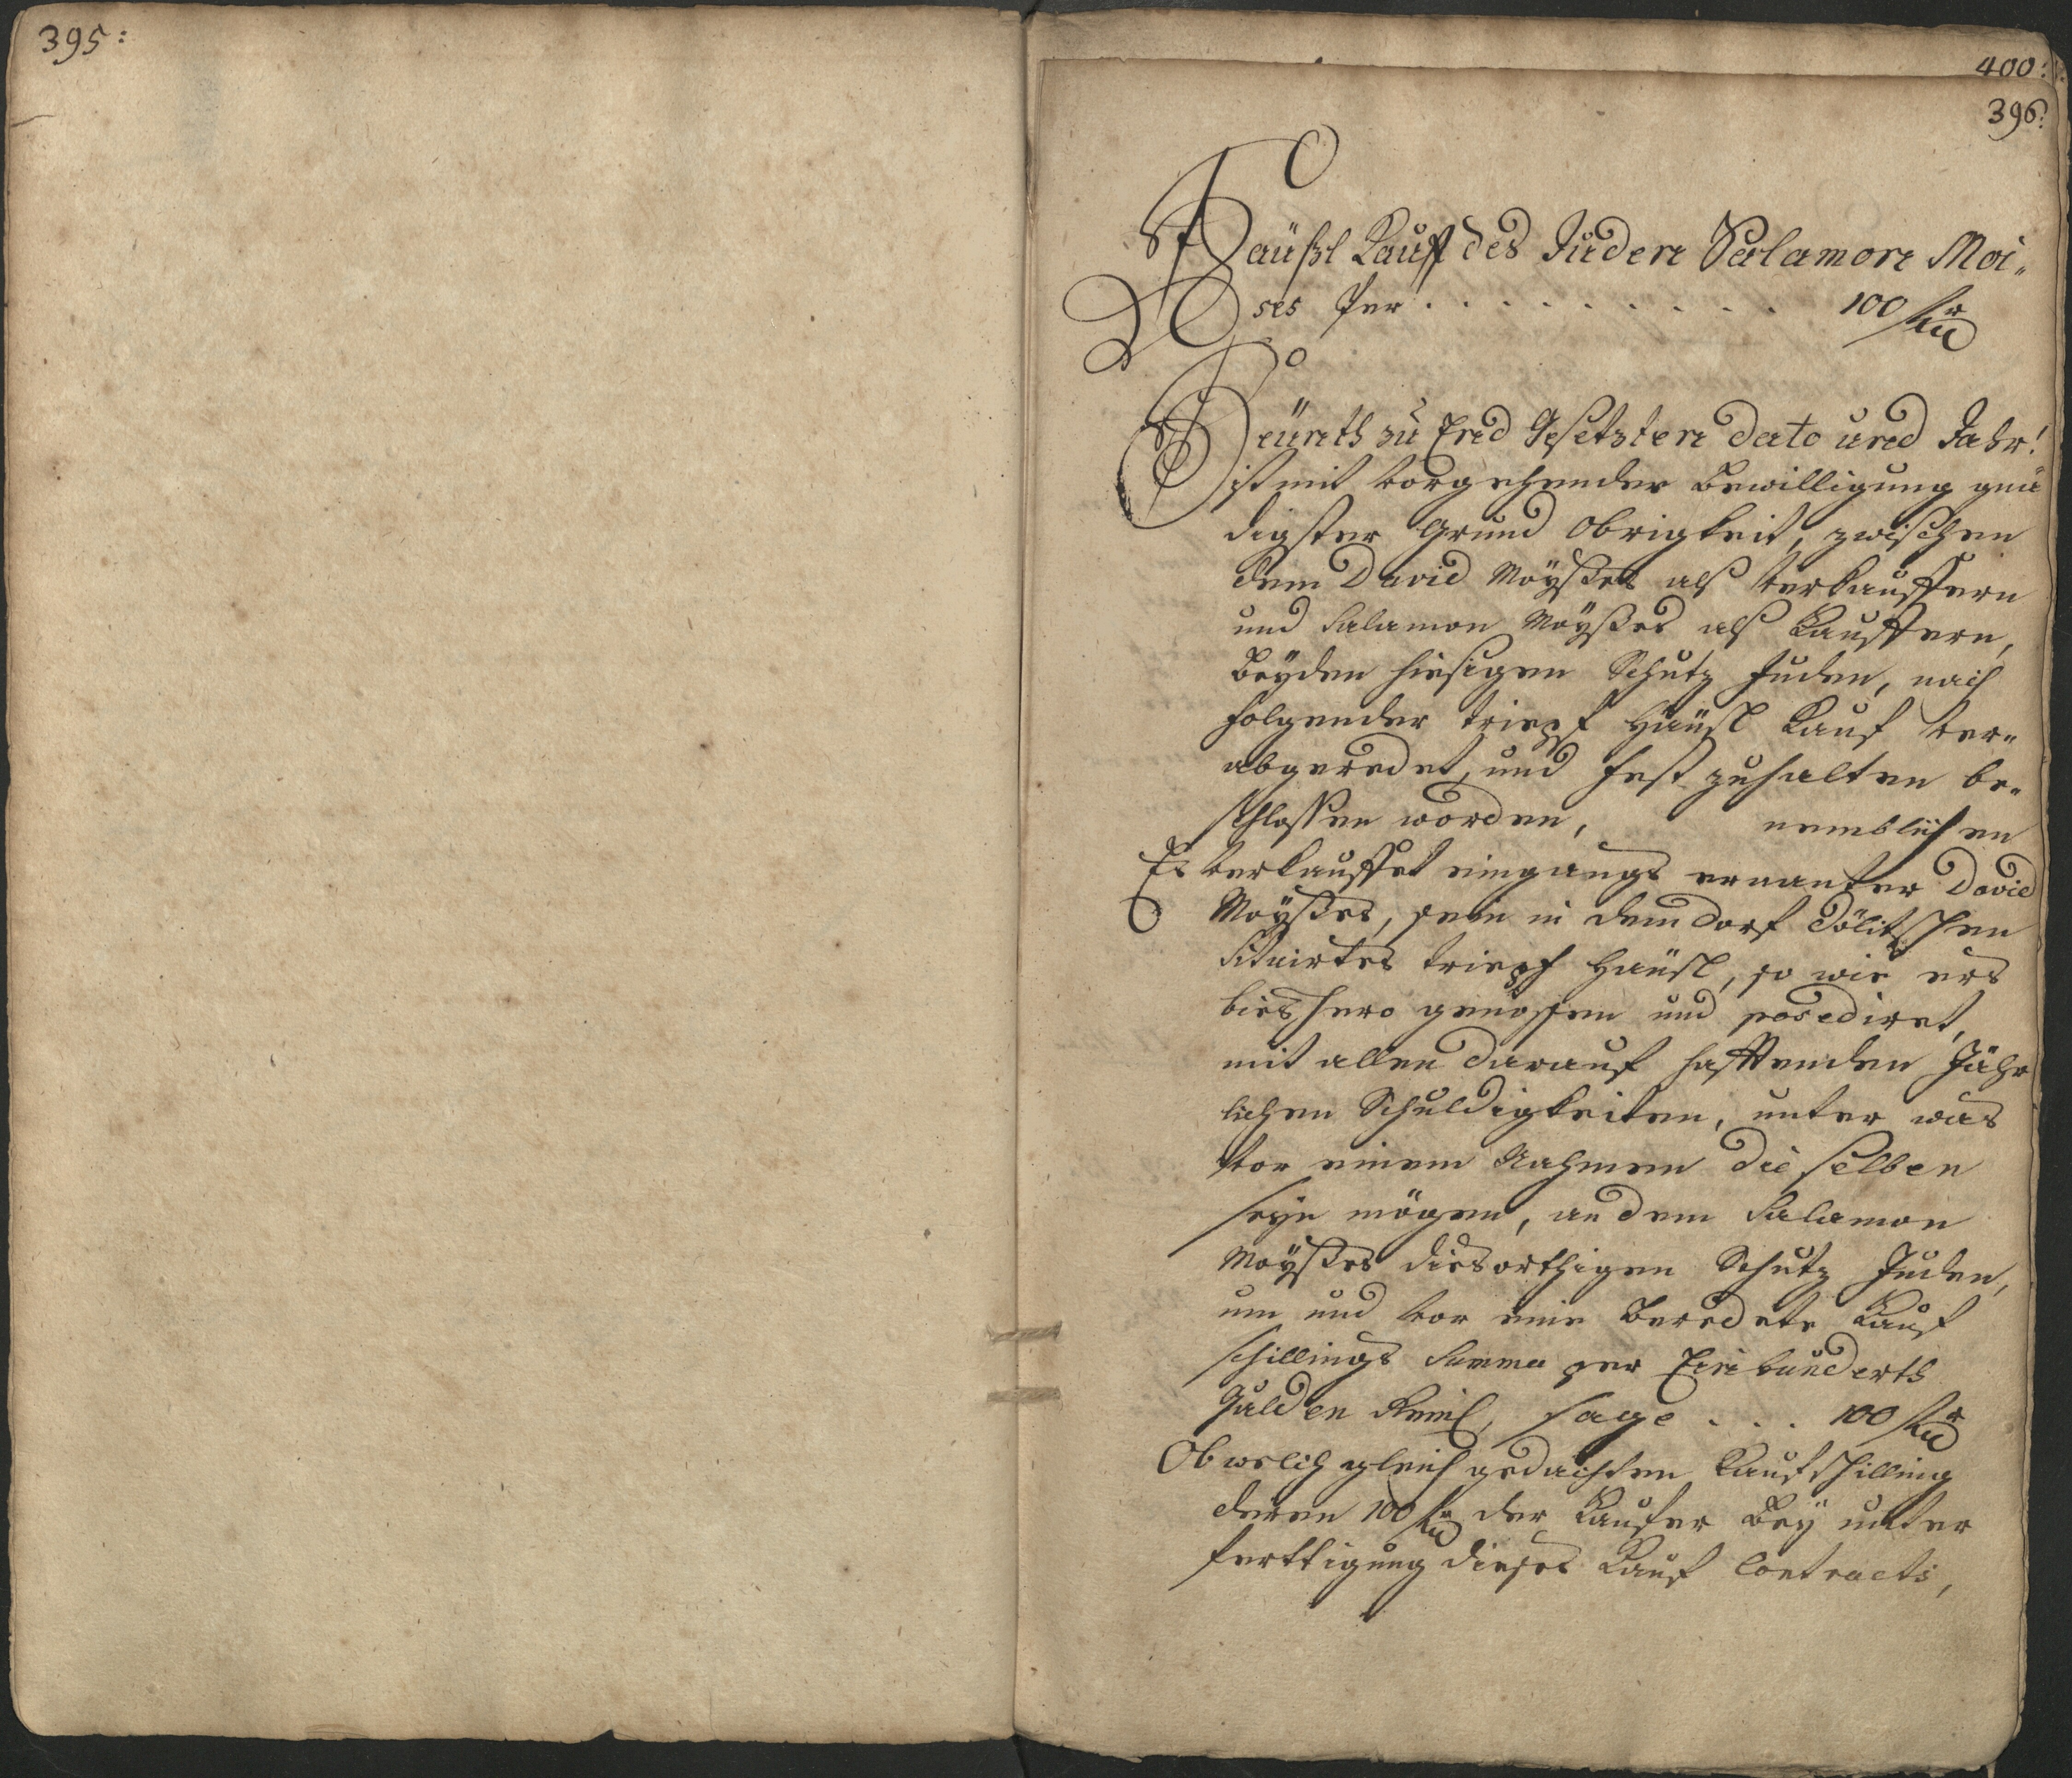 395:
400:
396:
Häußl Kauff des Juden Salamon Moi„
ses Per . . . . . . . . . . 100 f
Heünth zu End Gesetzten dato und Jahr!
ist mit vorgehender bewilligung gnä
digster Grund Obrigkeit, zwischen
dem David Moÿses alß Verkauffern
und Salamon Moÿses alß Kauffern,
beÿden hiesigen Schutz Juden, nach
folgender Häusl Kauf ver„
abgeredet, und fest zuhalten be„
schlossen worden, nemblichen
Es verkauffet eingangs ernanter David
Moÿses, sein in dem Dorf Dölitschen
situirtes Häusl, so wie ers
bieshero genossen und posediret,
mit allen darauf hafftenden Jähr
lichen Schuldigkeiten, unter was
vor einem Nahmen die selben
seÿn mögen, an dem Salamon
Moÿses diesorthigen Schutz Juden,
um und vor eine beredete Kauf
schillings Summa per Einhunderth
Gulden Reinl, sage . . . 100 f
Ob welch gleich gedachten Kaufschilling
deren 100 f der Kaufer beÿ unter
ferttigung dieses Kauf Contracts,